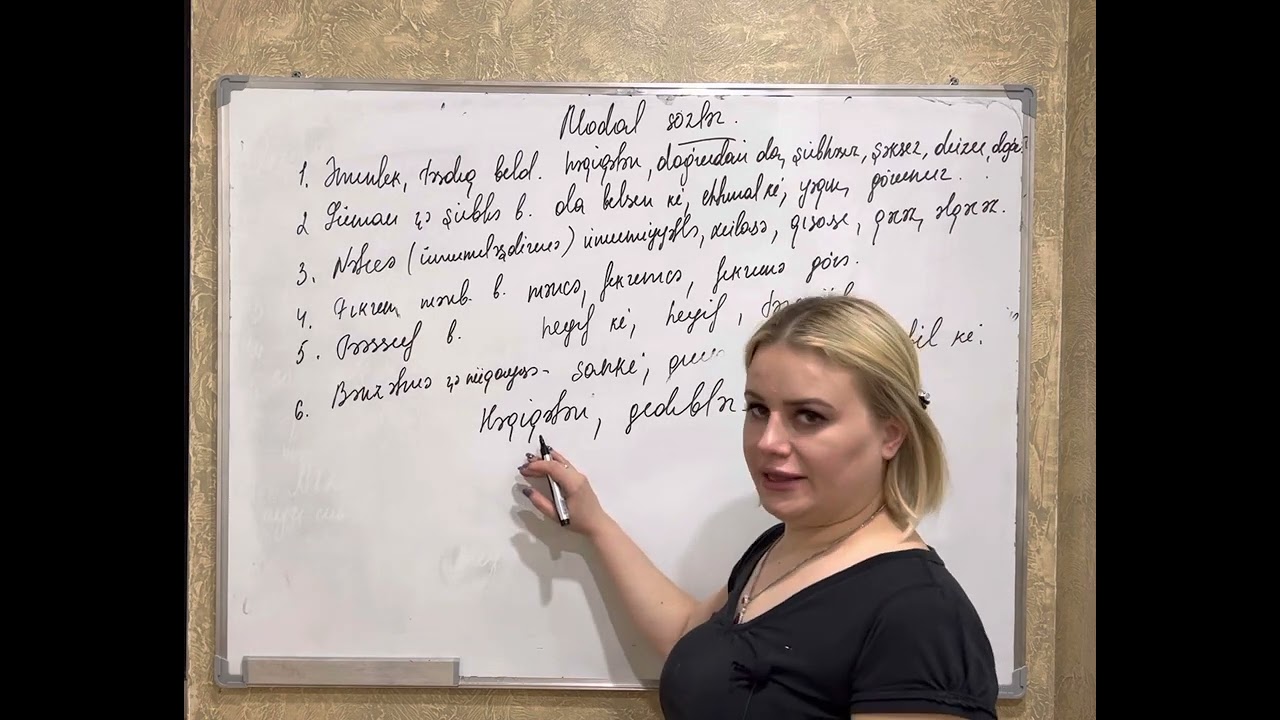 Modal sözlər.
1. Əminlik, təsdiq bild. həqiqətən, doğrudan da, şübhəsiz, şəksiz, düzü, doğru
2 Güman və şübhə b. ola bilsin ki, ehtimal ki, yəqin, görünür.
3. Nəticə (ümumiləşdirmə) ümumiyyətlə, xülasə, qısası,
4. Fikrin mənb. b. məncə, fikrimcə, fikrimə görə.
5. Təəssüf b. heyif ki, heyif,
6. Bənzətmə və müqayisə - sanki, ki.
Həqiqətən, gediblər